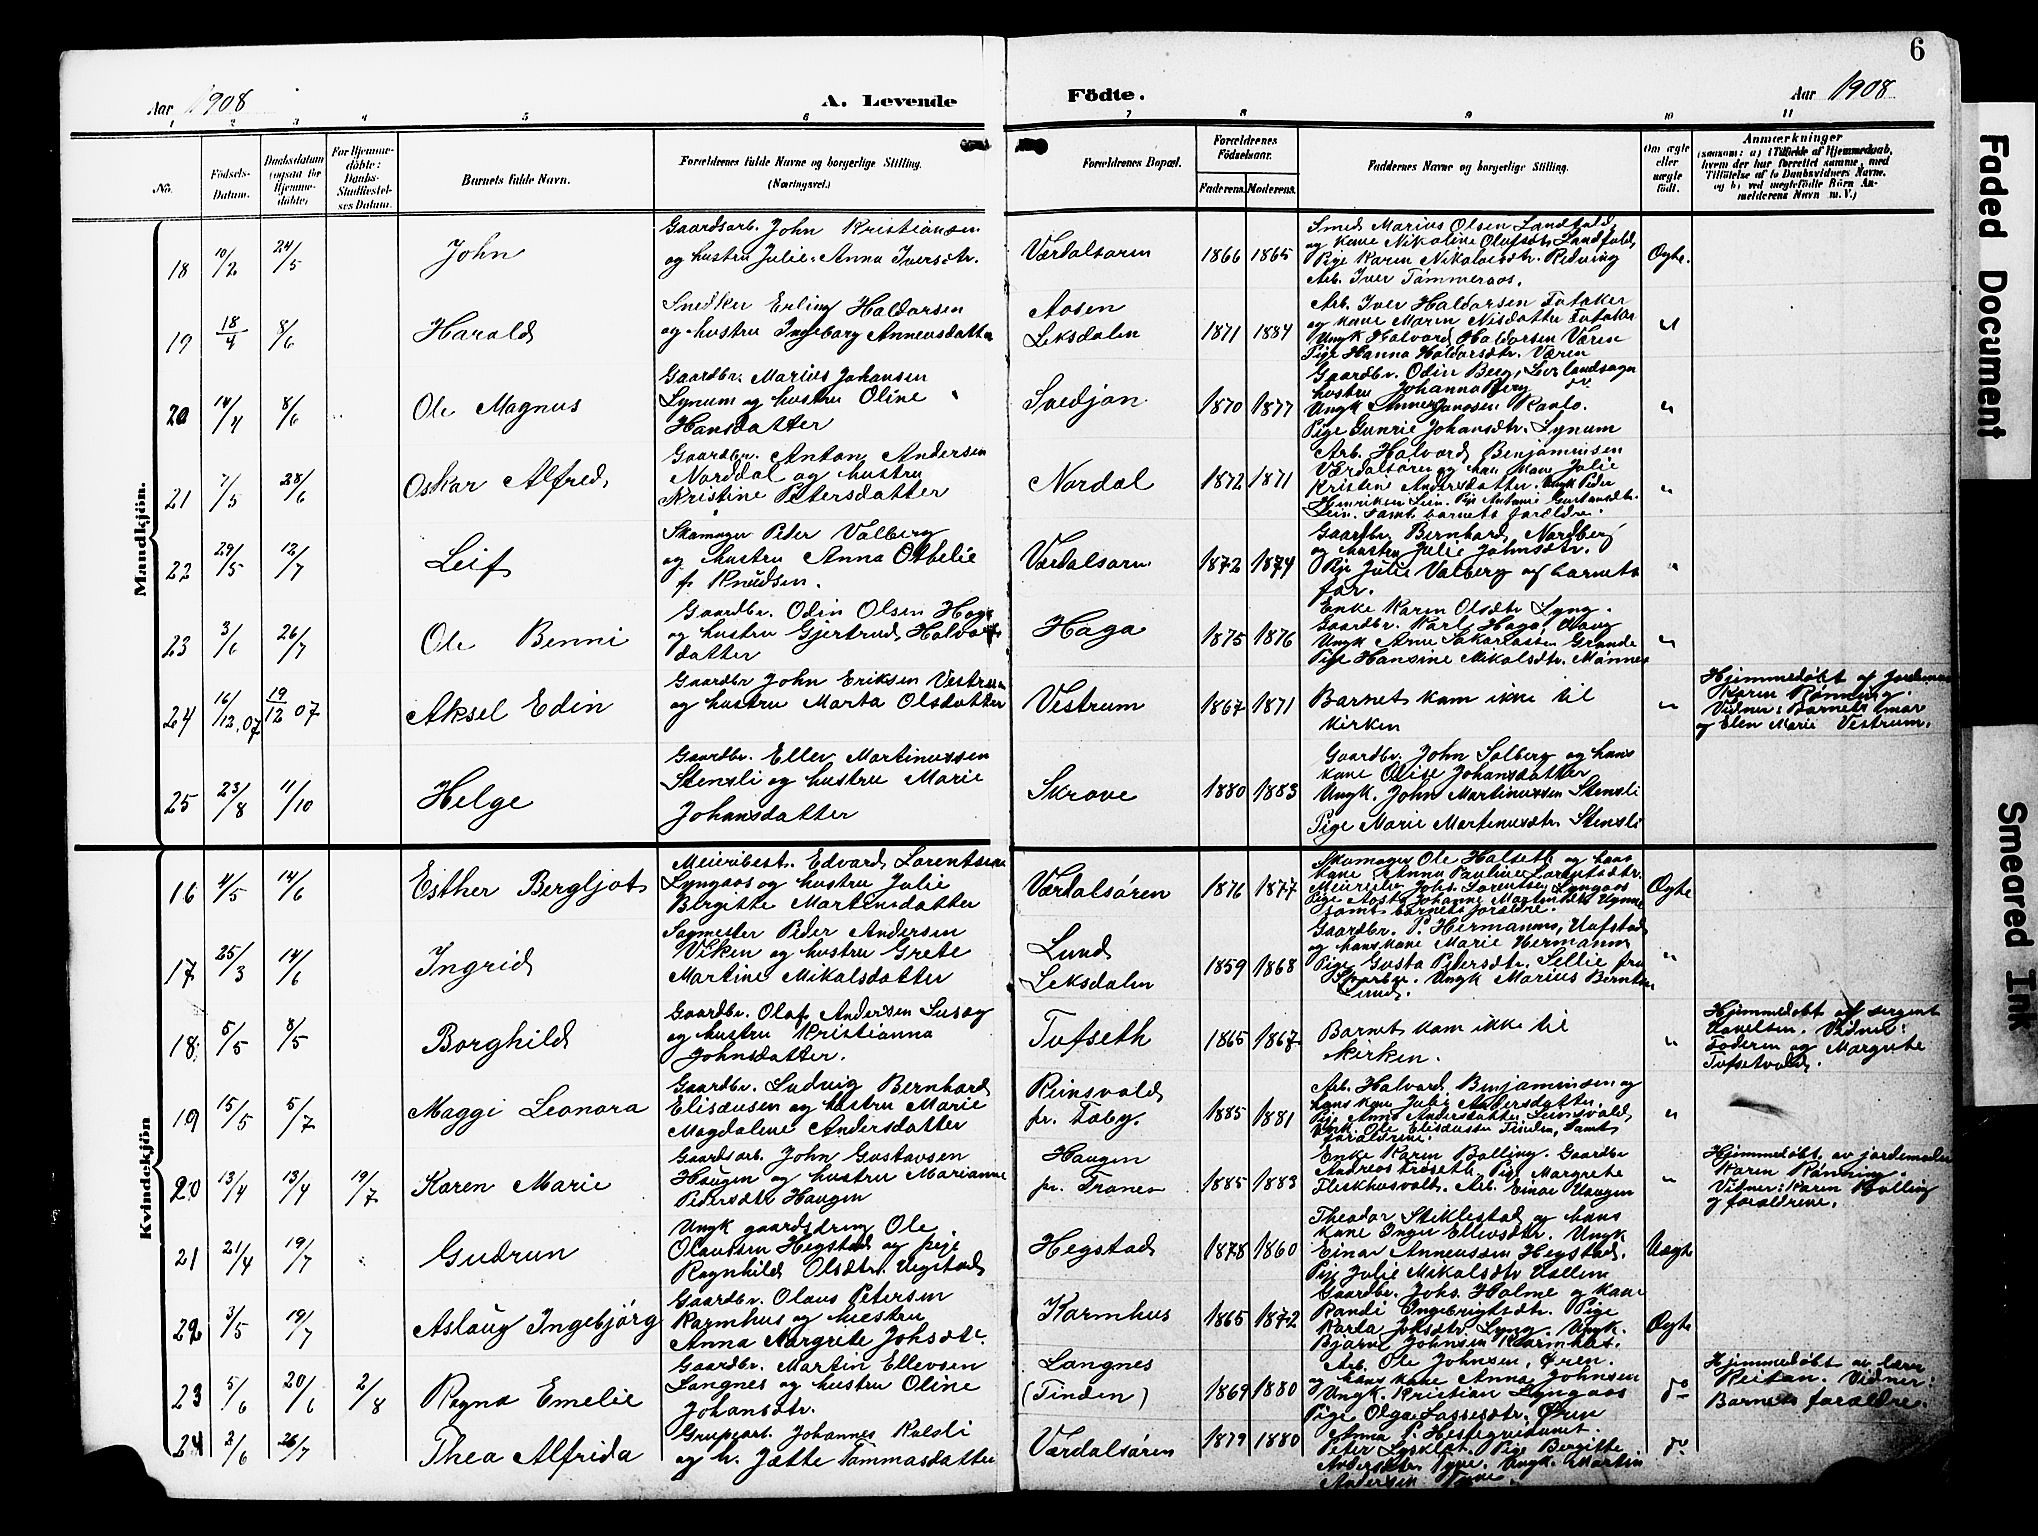 6
Aar 1908
A. Levende
Födte.
Aar 1908
1 2 3 4 5 6 7 8 9 10 11
No.
Födsels-Datum.
Daabsdatum (ogsaa for Hjemmedöbte)
For Hjemmedöbte: Daabs-Stadfæstelses Datum.
Barnets fulde Navn.
Forældrenes fulde Navne og borgerlige Stilling.
(Næringsvei.)
Forældrenes Bopæl.
Forældrenes Födselsaar.
Faderens. Moderens.
Faddernes Navne og borgerlige Stilling.
Om ægte eller uægte födt.
Anmærkninger
(saasom: a) i Tilfælde af Hjemmedaab, hvem der har forrettet samme, med Tilföielse af to Daabsvidners Navne, og b) ved uægtefödte Börn Anmelderens Navn m. V.)
Mandkjön.
18 10/2 24/5 John
Gaardsarb. John Kristiansen
og hustru Julie Anna Iversdtr.
Værdalsøren 1866 1865
Smed Marius Olsen Landfald
og kone Nikoline Olufsdtr. Landfald
Pige Karen Nikolaisdtr. Redving
Arb. Iver Tømmeraas.
Ægte.
19 18/4 8/6 Harald
Snedker Erling Haldorsen
og hustru Ingeborg Anneusdatter
Aasen
Leksdalen 1871 1884
Arb. Iver Haldorsen
og kone Maren
Ungk Halvard Haldorsen Væren
Pige Hanna Haldorsdtr. Væren
20 14/4 8/6 Ole Magnus
Gaardbr. Marius Johansen
Lynum og hustru Oline
Hansdatter
Svedjan 1870 1877
Gaardbr. Odin Berg,
hustru Johanna Berg
Ungk
Pige Gunrie Johansdtr. Lynum
21 7/5 28/6 Oskar Alfred
Gaardbr. Anton Andersen
Norddal og hustru
Kristine Petersdatter
Nordal 1872 1871
Arb. Halvard Benjaminsen
Værdalsøren og hans kone Julie
Kristine Andersdatter. Ungk Peder
Henriksen Lein. Pige Antonie
Lein. samt barnets forældre.
22 29/5 12/7 Leif
Skomager Peder Valberg
og hustru Anna Othelie
f. Knudsen.
Værdalsøren 1872 1874
Gaardbr. Bernhard Nordberg
og hustru Julie Johnsdtr.
Pige Julie Valberg og barnets
far.
23 3/6 26/7 Ole Benni
Gaardbr. Odin Olsen Haga
og hustru Gjertrud Halvors-
datter
Haga 1875 1876
Enke Karen Olsdtr Lyng.
Gaardbr. Karl Haga,
Ungk Arne Sakariassen Grande
Pige Hansine Mikalsdtr. Mønnes
24 16/12.07 19/12 07 Aksel Edin
Gaardbr John Eriksen Vestrum
og hustru Marta Olsdatter
Vestrum 1867 1871
Barnet kom ikke til
kirken
Hjemmedøbt af jordemor
Karen Rønning.
Vidner: Barnets mor
og Elen Marie Vestrum.
25 23/8 11/10 Helge
Gaardbr. Ellev Martinussen
Stensli og hustru Marie
Johansdatter
Skrove 1880 1883
Gaardbr. John Solberg og hans
kone Olise Johansdatter
Ungk. John Martinussen Stensli
Pige Marie Martinusdtr. Stensli
Kvindekjön
16 4/5 14/6 Esther Bergljot
Meieribest. Edvard Lorentsen
Lyngaas og hustru Julie
Birgitte Martinsdatter
Værdalsøren 1876 1877
Skomager Ole Halseth og hans
kone Anna Pauline Lorentsdtr.
Meiereier Johs. Lorentsen Lyngaas
samt barnets forældre.
Ægte
17 25/3 14/6 Ingrid
Sagmester Peder Andersen
Viken og hustru Grete
Martine Mikalsdatter
Lund
Leksdalen 1859 1868
Gaardbr. P. Hermanns,
og hans kone Marie Hermanns
Pige Gusta Petersdtr.
Ungk Marius Berntsen
Lund.
18 5/5 8/5 Borghild
Gaardbr. Olaf Andersen
og hustru Kristianna
Johnsdatter.
Tufseth 1865 1867
Barnet kom ikke til
kirken.
Hjemmedøbt af sergent
Vidner:
Foderen og Margrete
Tufsetvold.
19 15/5 5/7 Maggi Leonora
Gaardbr. Ludvig Bernhard
Eliseussen og hustru Marie
Magdalene Andersdatter
Reinsvold
pr. Faaby. 1885 1881
Arb. Halvard Benjaminsen og
hans kone Julie Andersdatter.
Pige Anna Andersdatter
Ungk. Ole Eliseussen Tinden, samt
forældrene.
20 13/4 13/4 19/7 Karen Marie
Gaardsarb. John Gustavsen
Haugen og hustru Marianne
Pedersdtr Haugen
Haugen
pr. Trones 1885 1883
Enke Karen Balling. Gaardbr
Andreas Trøseth. Pige Margrete
Fleskhusvald. Arb. Einar Haugen
Hjemmedøbt av jordemoder
Karen Rønning.
Vidner: Karen Balling
og forældrene.
21 21/4 19/7 Gudrun
Ungk gaardsdreng Ole
Olaussen Hegstad og pige
Ragnhild Olsdtr Hegstad
Hegstad 1878 1860
Theodor Stiklestad og hans
kone Inger Ellevsdtr. Ungk
Einar Anneussen Hegstad.
Pige Julie Mikalsdtr Hallem
Uægte
22 3/5 19/7 Aslaug Ingebjørg
Gaardbr. Olaus Petersen
Karmhus og hustru
Anna Margrete Johsdtr.
Karmhus 1865 1872
Gaardbr. Johs. Holme og kone
Randi Ingebrigtsdtr. Pige
Karla Johsdtr. Lyng. Ungk.
Bjarne Johnsen Karmhus.
Ægte
23 5/6 20/6 2/8 Ragna Emelie
Gaardbr. Martin Ellevsen
Langnes og hustru Oline
Johansdtr.
Langnes
(Tinden) 1869 1880
Arb. Ole Johnsen, Øren.
og hans kone Anna Johnsen
Ungk. Kristian Lyngaas
Pige Olga Lassesdtr. Øren
do
Hjemmedøbt av lærer
Reitan. Vidner:
Barnets forældre.
24 2/6 26/7 Thea Alfrida
Grubearb. Johannes Kulsli
og h. Jette Tommasdatter
Værdalsøren 1879 1880
Anna P. Hestegrei
Peter Pige Bergitte
Andersdtr. Tyve. Ungk. Martin
Andersen Tyve.
do
Faded Document
Smeared Ink